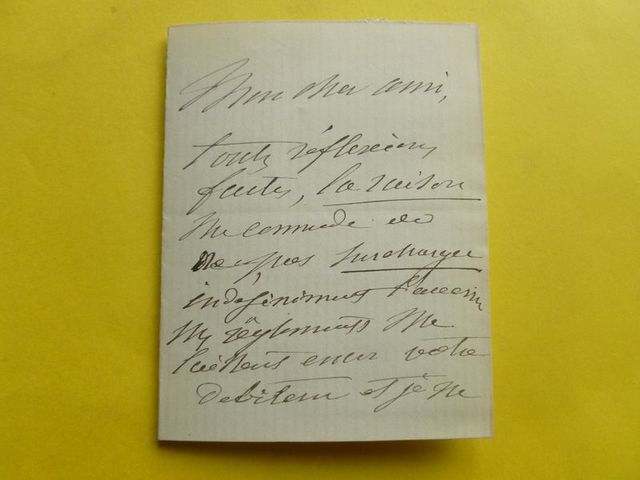 Mon cher ami,
toutes réflexions
faites, la raison
me commande de
ne pas surcharger
indéfiniment l'avenir
Mes règlements me
laissent encor votre
debiteur et je ne